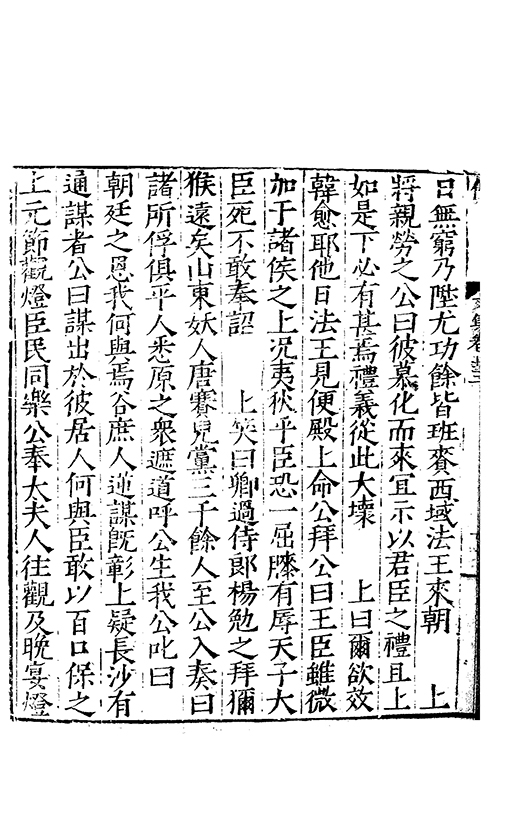 日無窮乃陞尤功餘皆班賚西域法王來朝　　上
將親勞之公曰彼慕化而來宜示以君臣之禮且上
如是下必有甚焉禮義從此大壞　　上曰爾欲效
韓愈耶他日法王見便殿上命公拜公曰王臣雖微
加于諸侯之上况夷狄乎臣恐一屈膝有辱天子大
臣死不敢奉詔　　上笑曰卿過侍郎楊勉之拜獼
猴遠矣山東妖人唐賽兒黨三千餘人至公入奏曰
諸所俘俱平人悉原之衆遮道呼公生我公叱曰
朝廷之恩我何與焉谷庶人蓮謀旣彰上疑長沙有
通謀者公曰謀出於彼居人何與臣敢以百口保之
上元節觀燈臣民同樂公奉太夫人往觀及晚宴燈